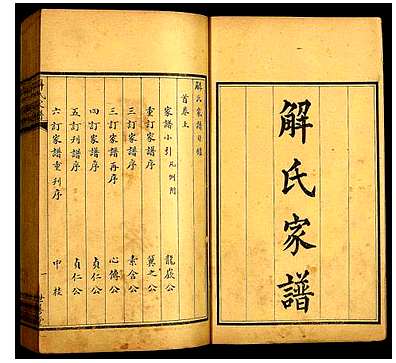 解氏家譜
解氏家譜目錄
首卷上
家譜小引 凡例附 龍巖公
重訂家譜序 冀之公
三訂家譜序 素含公
三訂家譜再序 心傳公
四訂家譜序 貞仁公
五訂刊譜序 貞仁公
六訂家譜重刊序 中枝
一